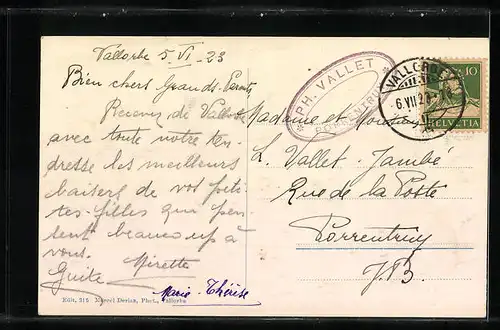 Vallorbe 5 VI - 23
Bien chers Grands-Parents
Recevez de Vallorbe
avec toute notre ten-
dresse les meilleurs
baisers de vos peti-
tes-filles qui pen-
sent beaucoup à
vous. Mirette
Guite Marie-Thérèse
Edit. 315 Marcel Derius, Phot., Vallorbe
PH. VALLET
PORRENTRUY
VALLORBE
6.VII.2
10
HELVETIA
Madame et Monsieur
L. Vallet-Jambé
Rue de la Poste
Porrentruy
J.B.